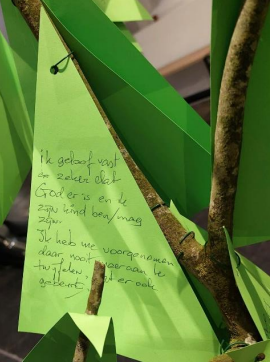 Ik geloof vast
en zeker dat
God er is en ik
zijn kind ben/mag
zijn.
Ik heb me voorgenomen
daar nooit meer aan te
twijfelen, wat er ook
gebeurt,